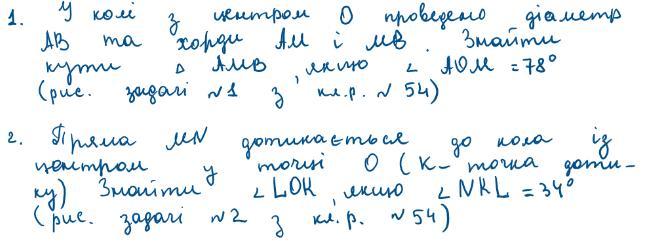 1. У колі з центром О проведено діаметр
АВ та хорди АМ і МВ. Знайти
кути △ АМВ, якщо ∠ АОМ = 78°
(рис. задачі №1 з кл.р. №54)
2. Пряма MN дотикається до кола із
центром у точці О (К- точка доти-
ку) Знайти ∠LOK, якщо ∠NKL = 34°
(рис. задачі №2 з кл.р. №54)